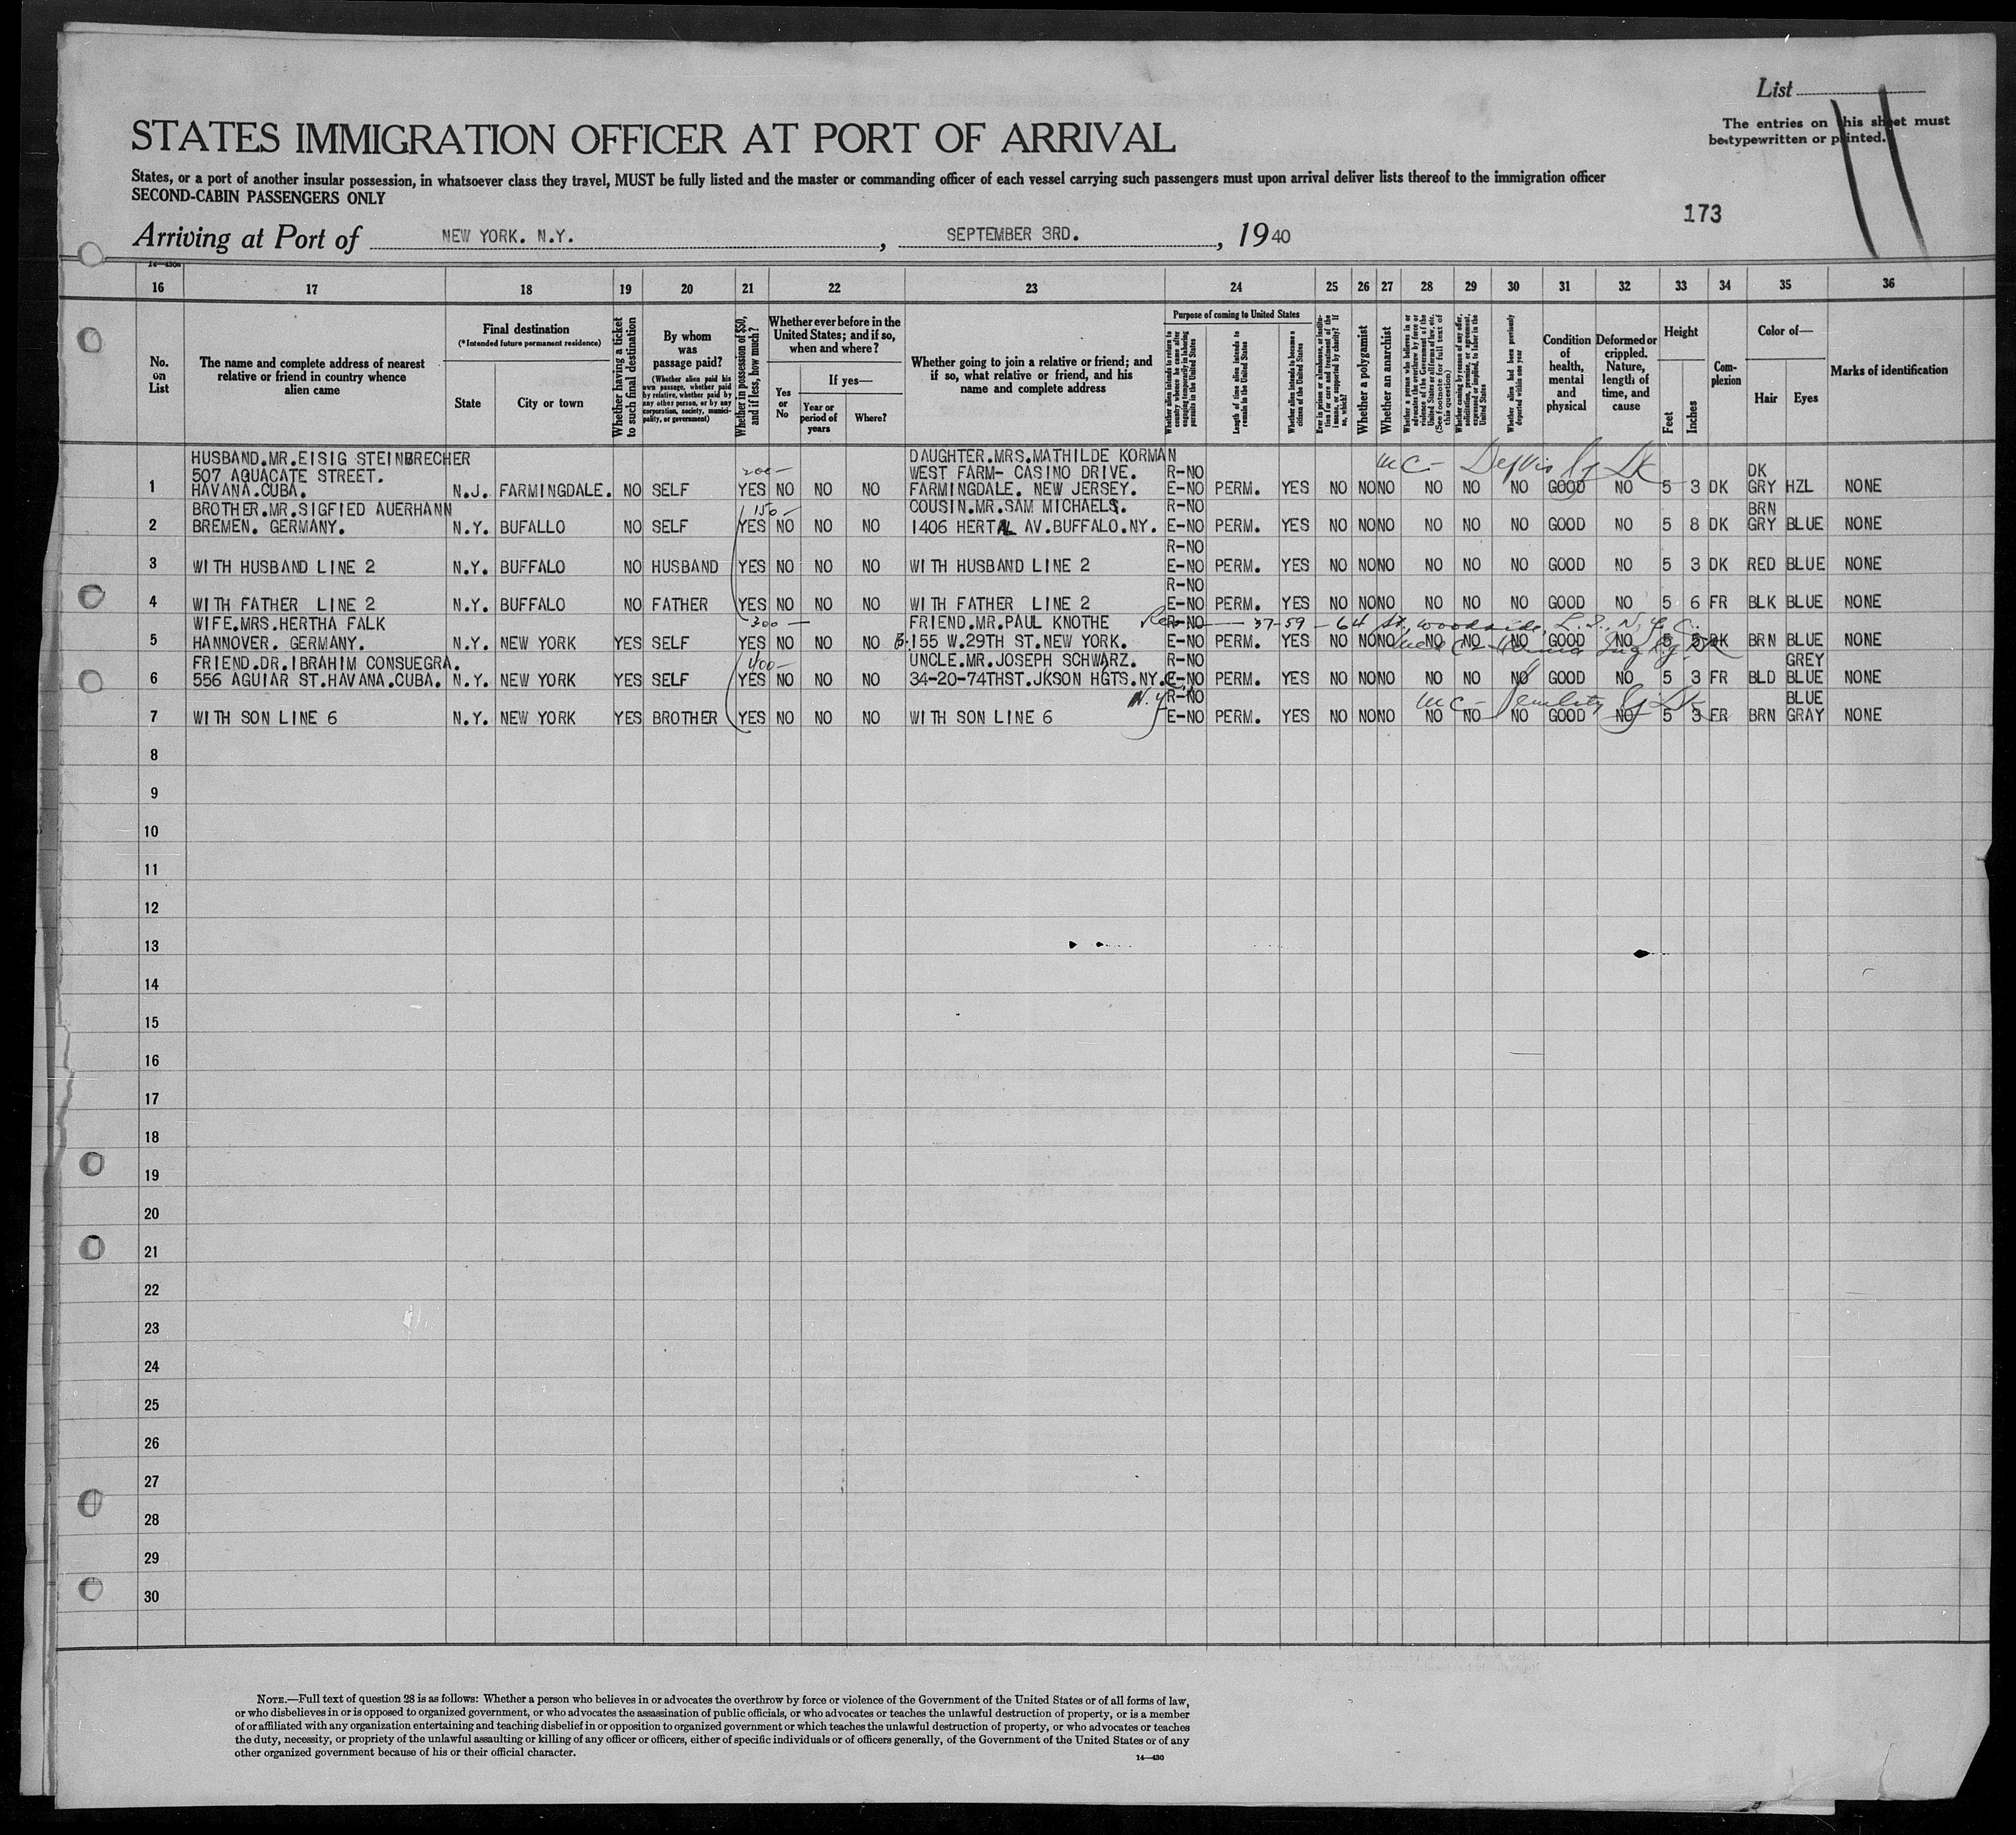 List
The entries on this sheet must
be typewritten or printed.
STATES IMMIGRATION OFFICER AT PORT OF ARRIVAL
States, or a port of another insular possession, in whatsoever class they travel, MUST be fully listed and the master or commanding officer of each vessel carrying such passengers must upon arrival deliver lists thereof to the immigration officer
SECOND-CABIN PASSENGERS ONLY
173
Arriving at Port of NEW YORK. N.Y. , SEPTEMBER 3RD. , 1940
14—430a
16 17 18 19 20 21 22 23 24 25 26 27 28 29 30 31 32 33 34 35 36
No. on List
The name and complete address of nearest relative or friend in country whence alien came
Final destination
(*Intended future permanent residence)
State
City or town
Whether having a ticket to such final destination
By whom was passage paid?
(Whether alien paid his own passage, whether paid by relative, whether paid by any other person, or by any corporation, society, municipality, or government)
Whether in possession of $50, and if less, how much?
Whether ever before in the United States; and if so, when and where?
Yes or No
If yes—
Year or period of years
Where?
Whether going to join a relative or friend; and if so, what relative or friend, and his name and complete address
Purpose of coming to United States
Whether alien intends to return to country whence he came after engaging temporarily in laboring pursuits in the United States
Length of time alien intends to remain in the United States
Whether alien intends to become a citizen of the United States
Ever in prison or almshouse, or institution for care and treatment of the insane, or supported by charity? If so, which?
Whether a polygamist
Whether an anarchist
Whether a person who believes in or advocates the overthrow by force or violence of the Government of the United States or all forms of law, etc. (See footnote for full text of this question)
Whether coming by reason of any offer, solicitation, promise, or agreement, expressed or implied, to labor in the United States
Whether alien had been previously deported within one year
Condition of health, mental and physical
Deformed or crippled. Nature, length of time, and cause
Height
Feet
Inches
Complexion
Color of—
Hair
Eyes
Marks of identification
HUSBAND.MR.EISIG STEINBRECHER DAUGHTER.MRS.MATHILDE KORMAN
507 AGUACATE STREET. 200— WEST FARM- CASINO DRIVE. R-NO DK
1 HAVANA.CUBA. N.J. FARMINGDALE. NO SELF YES NO NO NO FARMINGDALE. NEW JERSEY. E-NO PERM. YES NO NO NO NO NO NO GOOD NO 5 3 DK GRY HZL NONE
BROTHER.MR.SIGFIED AUERHANN 150— COUSIN.MR.SAM MICHAELS. R-NO BRN
2 BREMEN. GERMANY. N.Y. BUFALLO NO SELF YES NO NO NO 1406 HERTAL AV.BUFFALO.NY. E-NO PERM. YES NO NO NO NO NO NO GOOD NO 5 8 DK GRY BLUE NONE
R-NO
3 WITH HUSBAND LINE 2 N.Y. BUFFALO NO HUSBAND YES NO NO NO WITH HUSBAND LINE 2 E-NO PERM. YES NO NO NO NO NO NO GOOD NO 5 3 DK RED BLUE NONE
R-NO
4 WITH FATHER LINE 2 N.Y. BUFFALO NO FATHER YES NO NO NO WITH FATHER LINE 2 E-NO PERM. YES NO NO NO NO NO NO GOOD NO 5 6 FR BLK BLUE NONE
WIFE.MRS.HERTHA FALK 300— FRIEND.MR.PAUL KNOTHE R-NO 37-59-64 St, Woodside, L.I., N.Y.C.
5 HANNOVER. GERMANY. N.Y. NEW YORK YES SELF YES NO NO NO 155 W.29TH ST.NEW YORK. E-NO PERM. YES NO NO NO NO NO NO GOOD NO 5 5 DK BRN BLUE NONE
FRIEND.DR.IBRAHIM CONSUEGRA. 400— UNCLE.MR.JOSEPH SCHWARZ. R-NO GREY
6 556 AGUIAR ST.HAVANA.CUBA. N.Y. NEW YORK YES SELF YES NO NO NO 34-20-74THST.JKSON HGTS.NY. E-NO PERM. YES NO NO NO NO NO NO GOOD NO 5 3 FR BLD BLUE NONE
N.Y. R-NO BLUE
7 WITH SON LINE 6 N.Y. NEW YORK YES BROTHER YES NO NO NO WITH SON LINE 6 E-NO PERM. YES NO NO NO NO NO NO GOOD NO 5 3 FR BRN GRAY NONE
8
9
10
11
12
13
14
15
16
17
18
19
20
21
22
23
24
25
26
27
28
29
30
NOTE.—Full text of question 28 is as follows: Whether a person who believes in or advocates the overthrow by force or violence of the Government of the United States or of all forms of law,
or who disbelieves in or is opposed to organized government, or who advocates the assassination of public officials, or who advocates or teaches the unlawful destruction of property, or is a member
of or affiliated with any organization entertaining and teaching disbelief in or opposition to organized government or which teaches the unlawful destruction of property, or who advocates or teaches
the duty, necessity, or propriety of the unlawful assaulting or killing of any officer or officers, either of specific individuals or of officers generally, of the Government of the United States or of any
other organized government because of his or their official character.
14—430